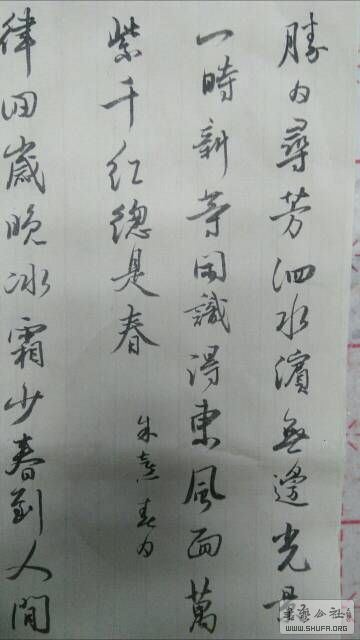 勝日尋芳泗水濱無邊光景
一時新等閑識得東風面萬
紫千紅總是春
朱熹春日
律回歲晚冰霜少春到人間
書法公社
WWW.SHUFA.ORG